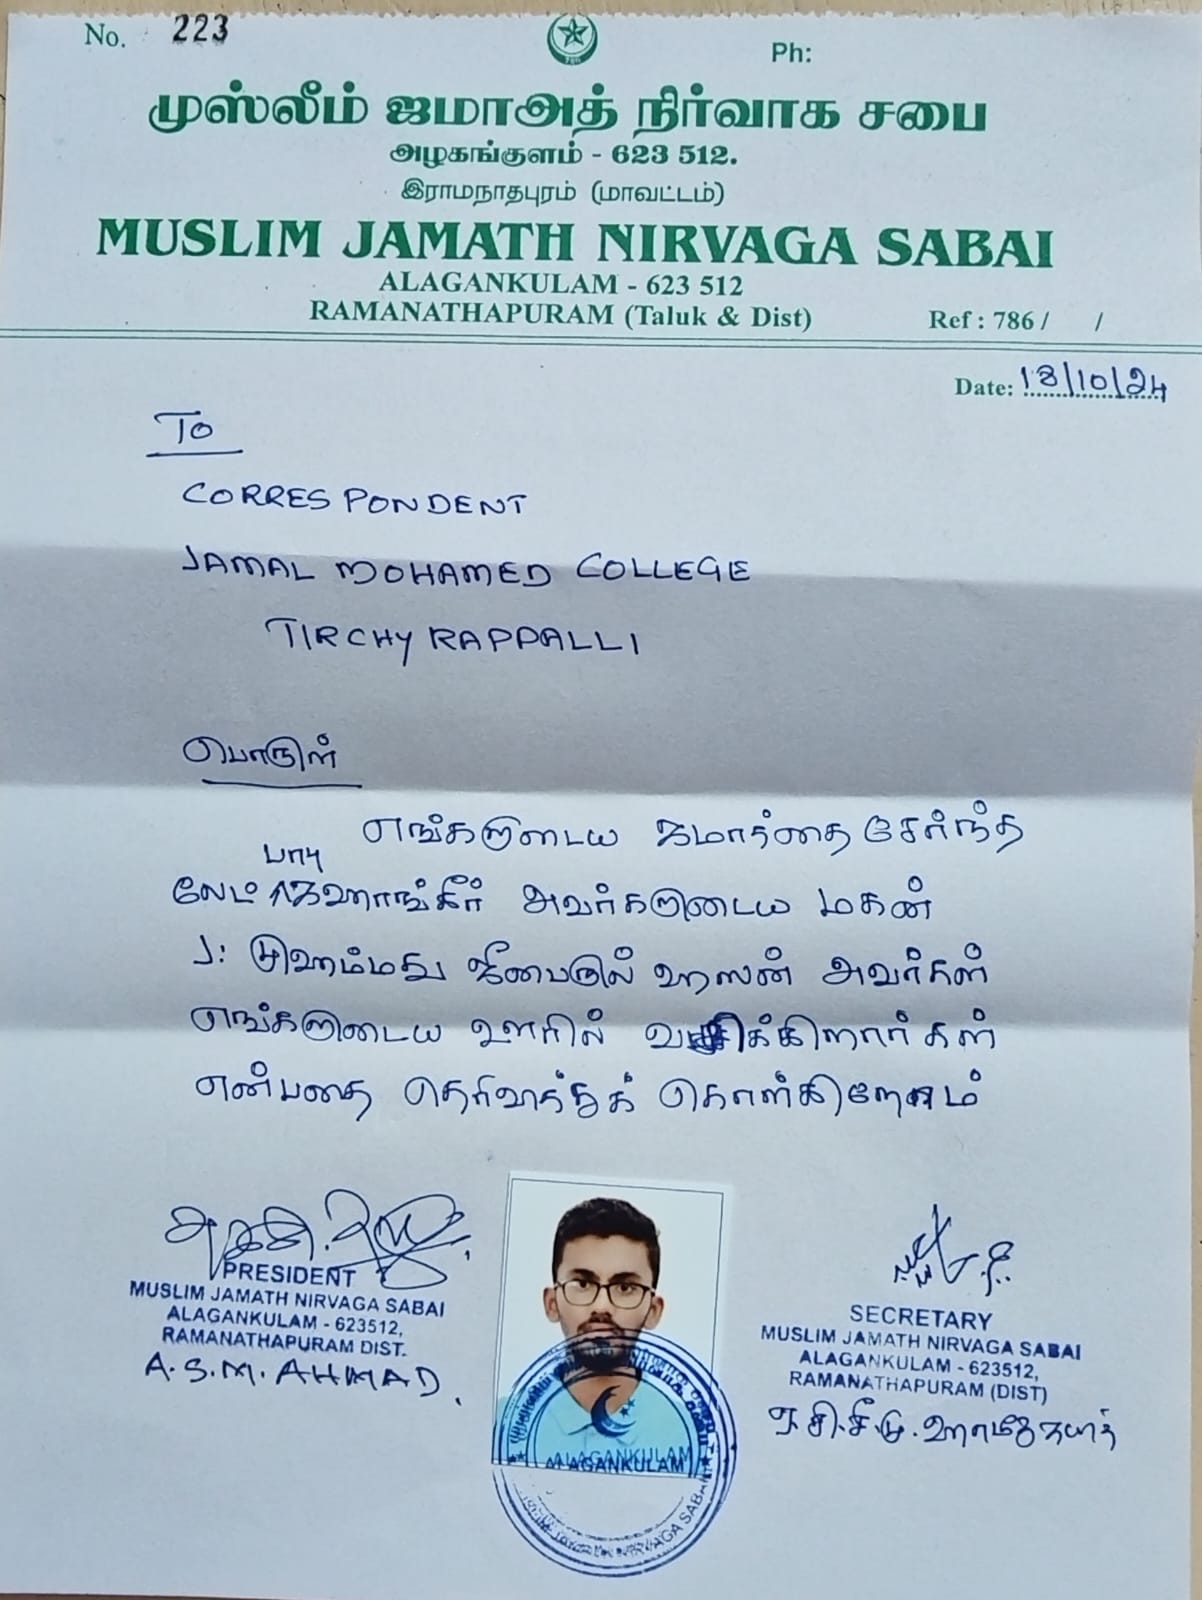 No. 223
786
Ph:
முஸ்லீம் ஜமாஅத் நிர்வாக சபை
அழகங்குளம் - 623 512.
இராமநாதபுரம் (மாவட்டம்)
MUSLIM JAMATH NIRVAGA SABAI
ALAGANKULAM - 623 512
RAMANATHAPURAM (Taluk & Dist)
Ref : 786 / /
Date: 18/10/24
To
CORRESPONDENT
JAMAL MOHAMED COLLEGE
TIRCHYRAPPALLI
பொருள்
எங்களுடைய ஜமாத்தை சேர்ந்த
ஜஹாங்கீர் அவர்களுடைய மகன்
J: முஹம்மது ஜீபைருல் ஹஸன் அவர்கள்
எங்களுடைய ஊரில் வசிக்கிறார்கள்
என்பதை தெரிவித்துக் கொள்கிறோம்
PRESIDENT
MUSLIM JAMATH NIRVAGA SABAI
ALAGANKULAM - 623512,
RAMANATHAPURAM DIST.
A.S.M. AHMAD.
SECRETARY
MUSLIM JAMATH NIRVAGA SABAI
ALAGANKULAM - 623512,
RAMANATHAPURAM (DIST)
ALAGANKULAM
ALAGANKULAM
NIRVAGA SABAI